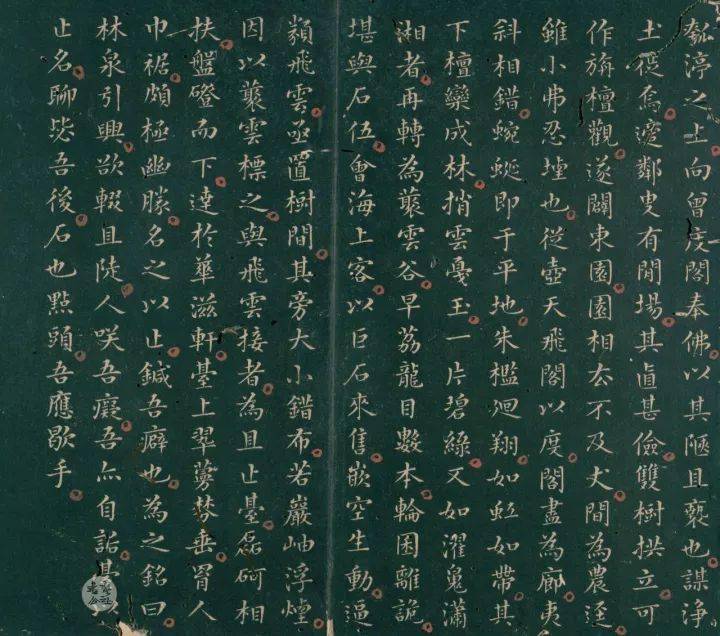 瓠渟之上向曾度閣奉佛以其陋且褻也謀浄
土徙焉適鄰叟有閒場其直甚儉雙樹拱立可
作旃檀觀遂闢東園園相去不及丈間為農逕
雖小弗忍堙也從壺天飛閣以度閣盡為廊夷
斜相錯蜿蜒即于平地朱檻迴翔如虹如帶其
下檀欒成林捎雲戛玉一片碧綠又如濯魂瀟
湘者再轉為蓑雲谷早荔龍目數本輪囷離詭
堪與石伍會海上客以巨石來售嵌空生動逼
纇飛雲亟置樹間其旁大小錯布若巖岫浮煙
因以蓑雲標之與飛雲接者為且止臺磊砢相
扶盤磴而下達於華滋軒臺上翠蘿林垂罥人
巾裾頗極幽勝名之以止鍼吾癖也為之銘曰
林泉引興欲輟且陡人咲吾癡吾亦自詬
止名聊毖吾後石也點頭吾應歇手